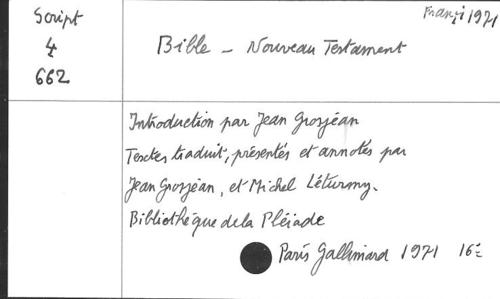 Script
4
662
Franç 1971
Bible - Nouveau Testament
Introduction par Jean Grosjean
Textes traduit, présentés et annotés par
Jean Grosjean, et Michel Léturmy.
Bibliothèque de la Pléiade
Paris Gallimard 1971 16=